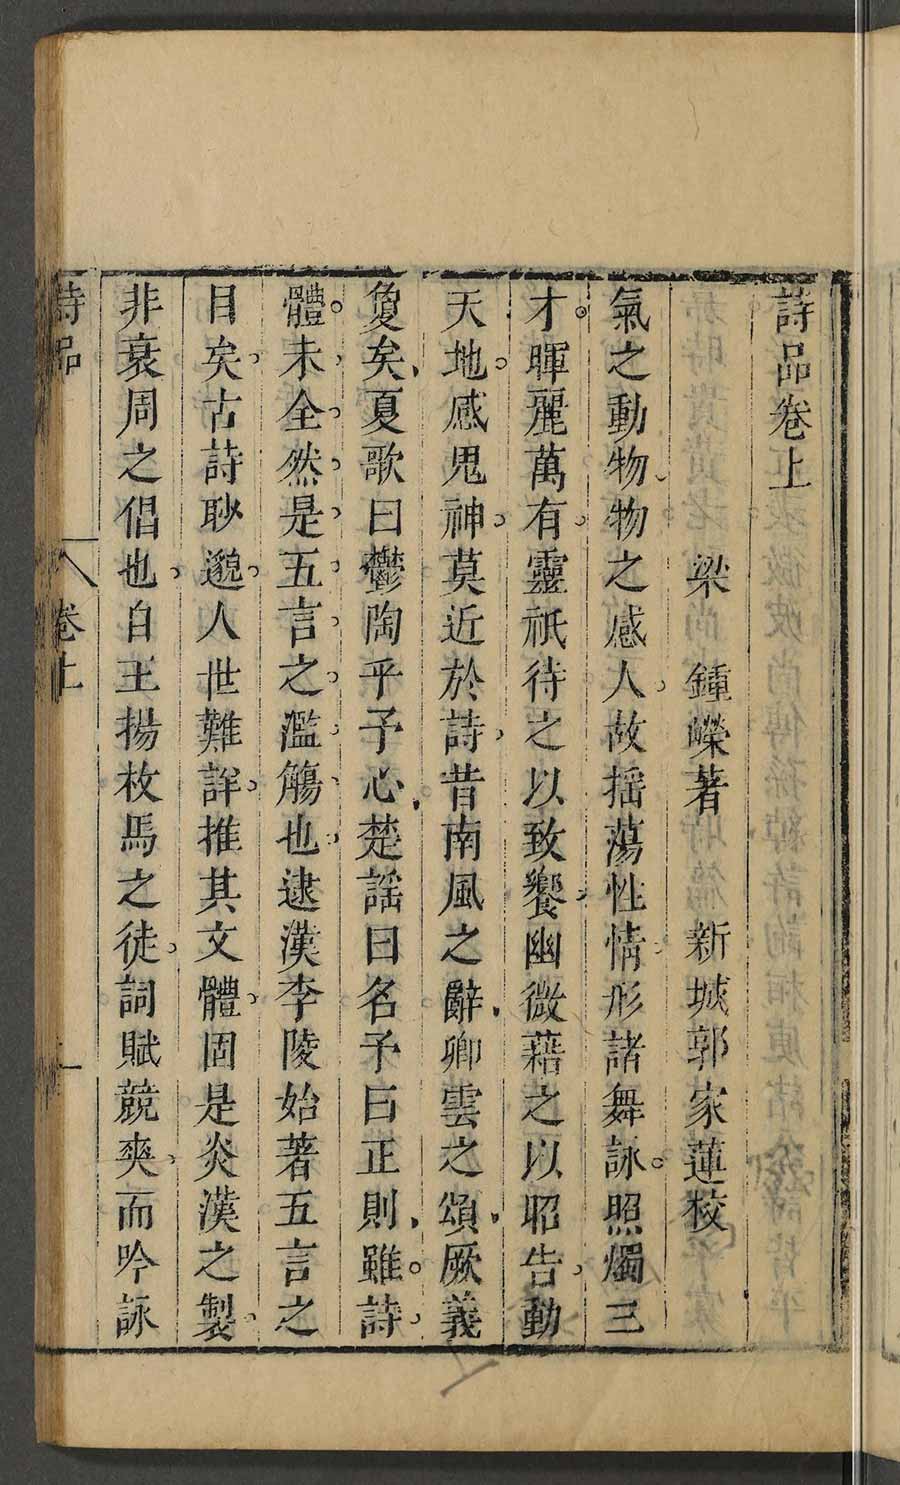 詩品卷上
梁 鍾嶸著 新城郭家蓮校
氣之動物物之感人故搖蕩性情形諸舞詠照燭三
才暉麗萬有靈祇待之以致饗幽微藉之以昭告動
天地感鬼神莫近於詩昔南風之辭卿雲之頌厥義
敻矣夏歌曰鬱陶乎予心楚謠曰名予曰正則雖詩
體未全然是五言之濫觴也逮漢李陵始著五言之
目矣古詩眇邈人世難詳推其文體固是炎漢之製
非衰周之倡也自王揚枚馬之徒詞賦競爽而吟詠
詩品 卷上 一